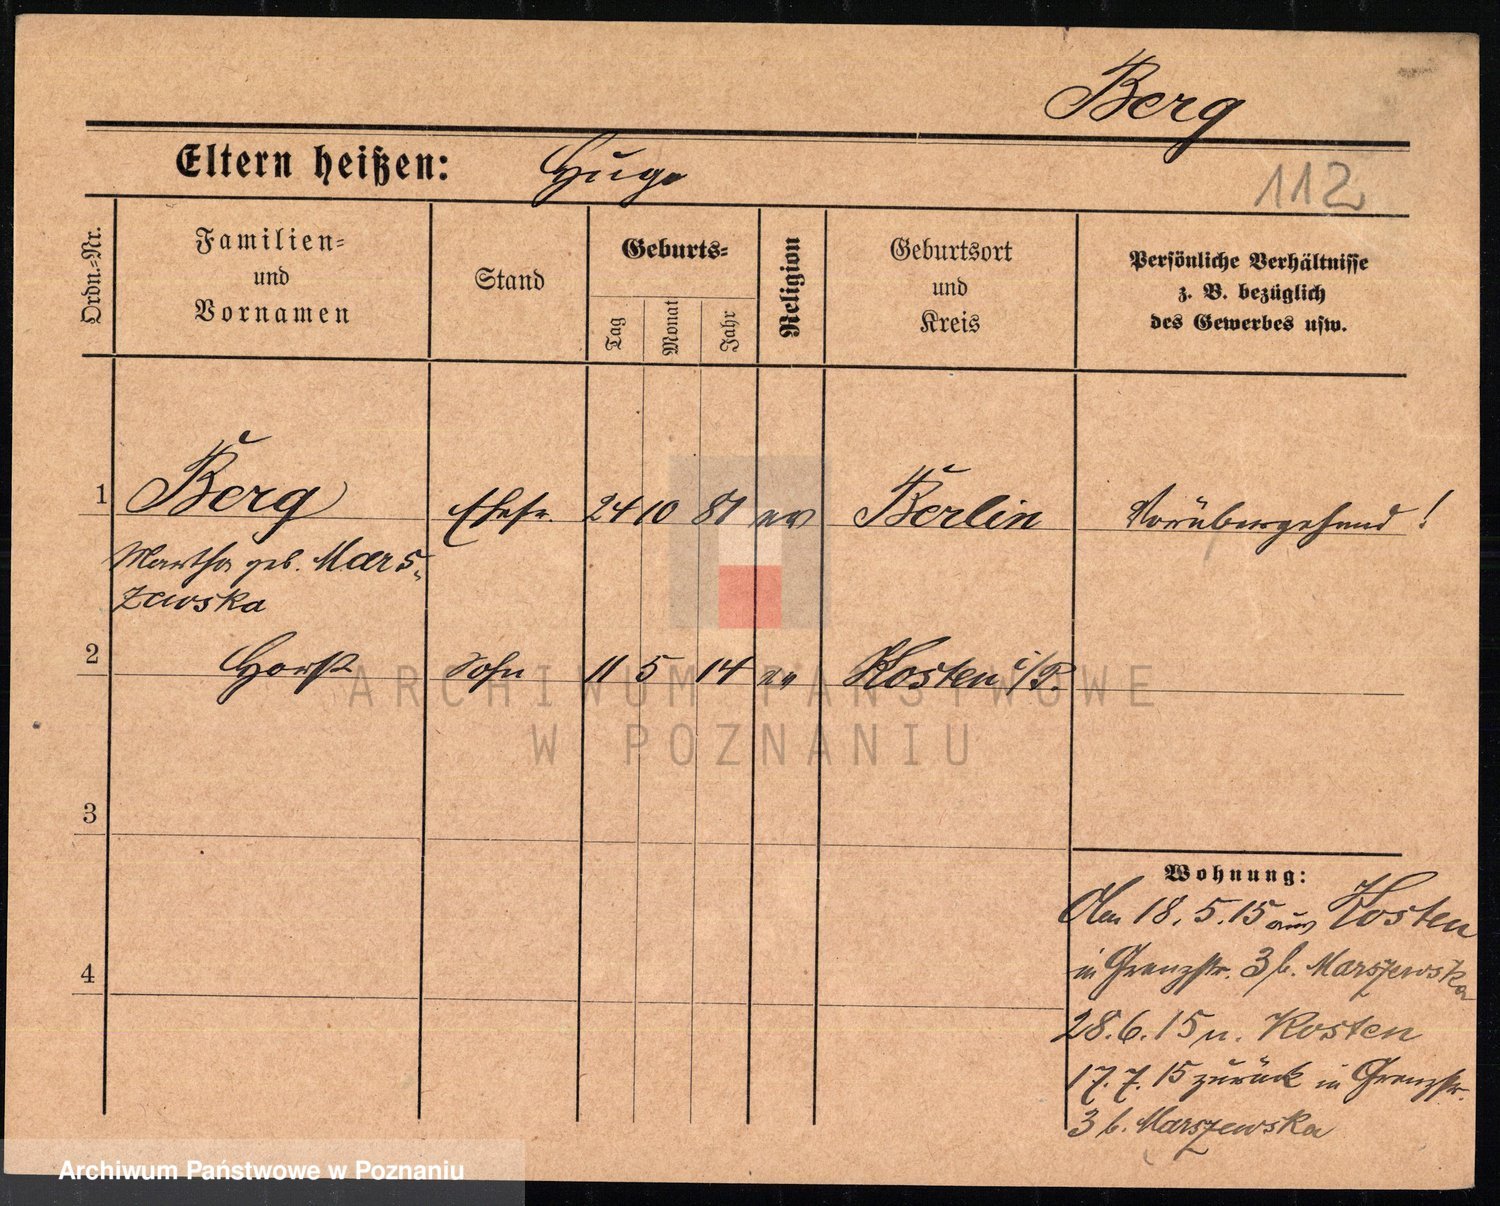 Berg
Eltern heißen: Hugo
112
Ordn.=Nr.
Familien=
und
Vornamen
Stand
Geburts=
Tag
Monat
Jahr
Religion
Geburtsort
und
Kreis
Persönliche Verhältnisse
z. B. bezüglich
des Gewerbes usw.
1 Berg Ehefr. 24 10 81 ev Berlin Vorübergehend!
Martha geb. Mars-
zewska
2 Horst Sohn 11 5 14 ev Kosten i/P.
3
4
Wohnung:
Am 18.5.15 aus Kosten
in Grenzstr. 3 b. Marszewska
28.6.15 n. Kosten
17.7.15 zurück in Grenzstr.
3 b. Marszewska
ARCHIWUM PAŃSTWOWE
W POZNANIU
Archiwum Państwowe w Poznaniu